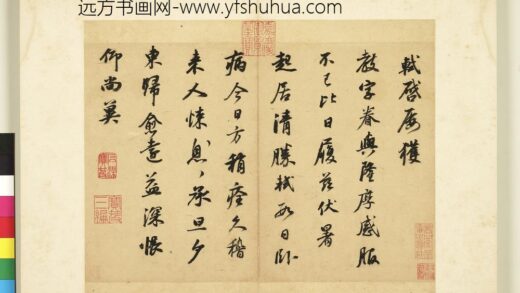 远方书画网-www.yfshuhua.com
軾啓屢獲
教字眷與隆厚感服
不已比日履茲伏暑
起居清勝軾數日卧
病今日方稍痊久稽
來人悚息承旦夕
東歸愈遠益深悵
仰尚冀